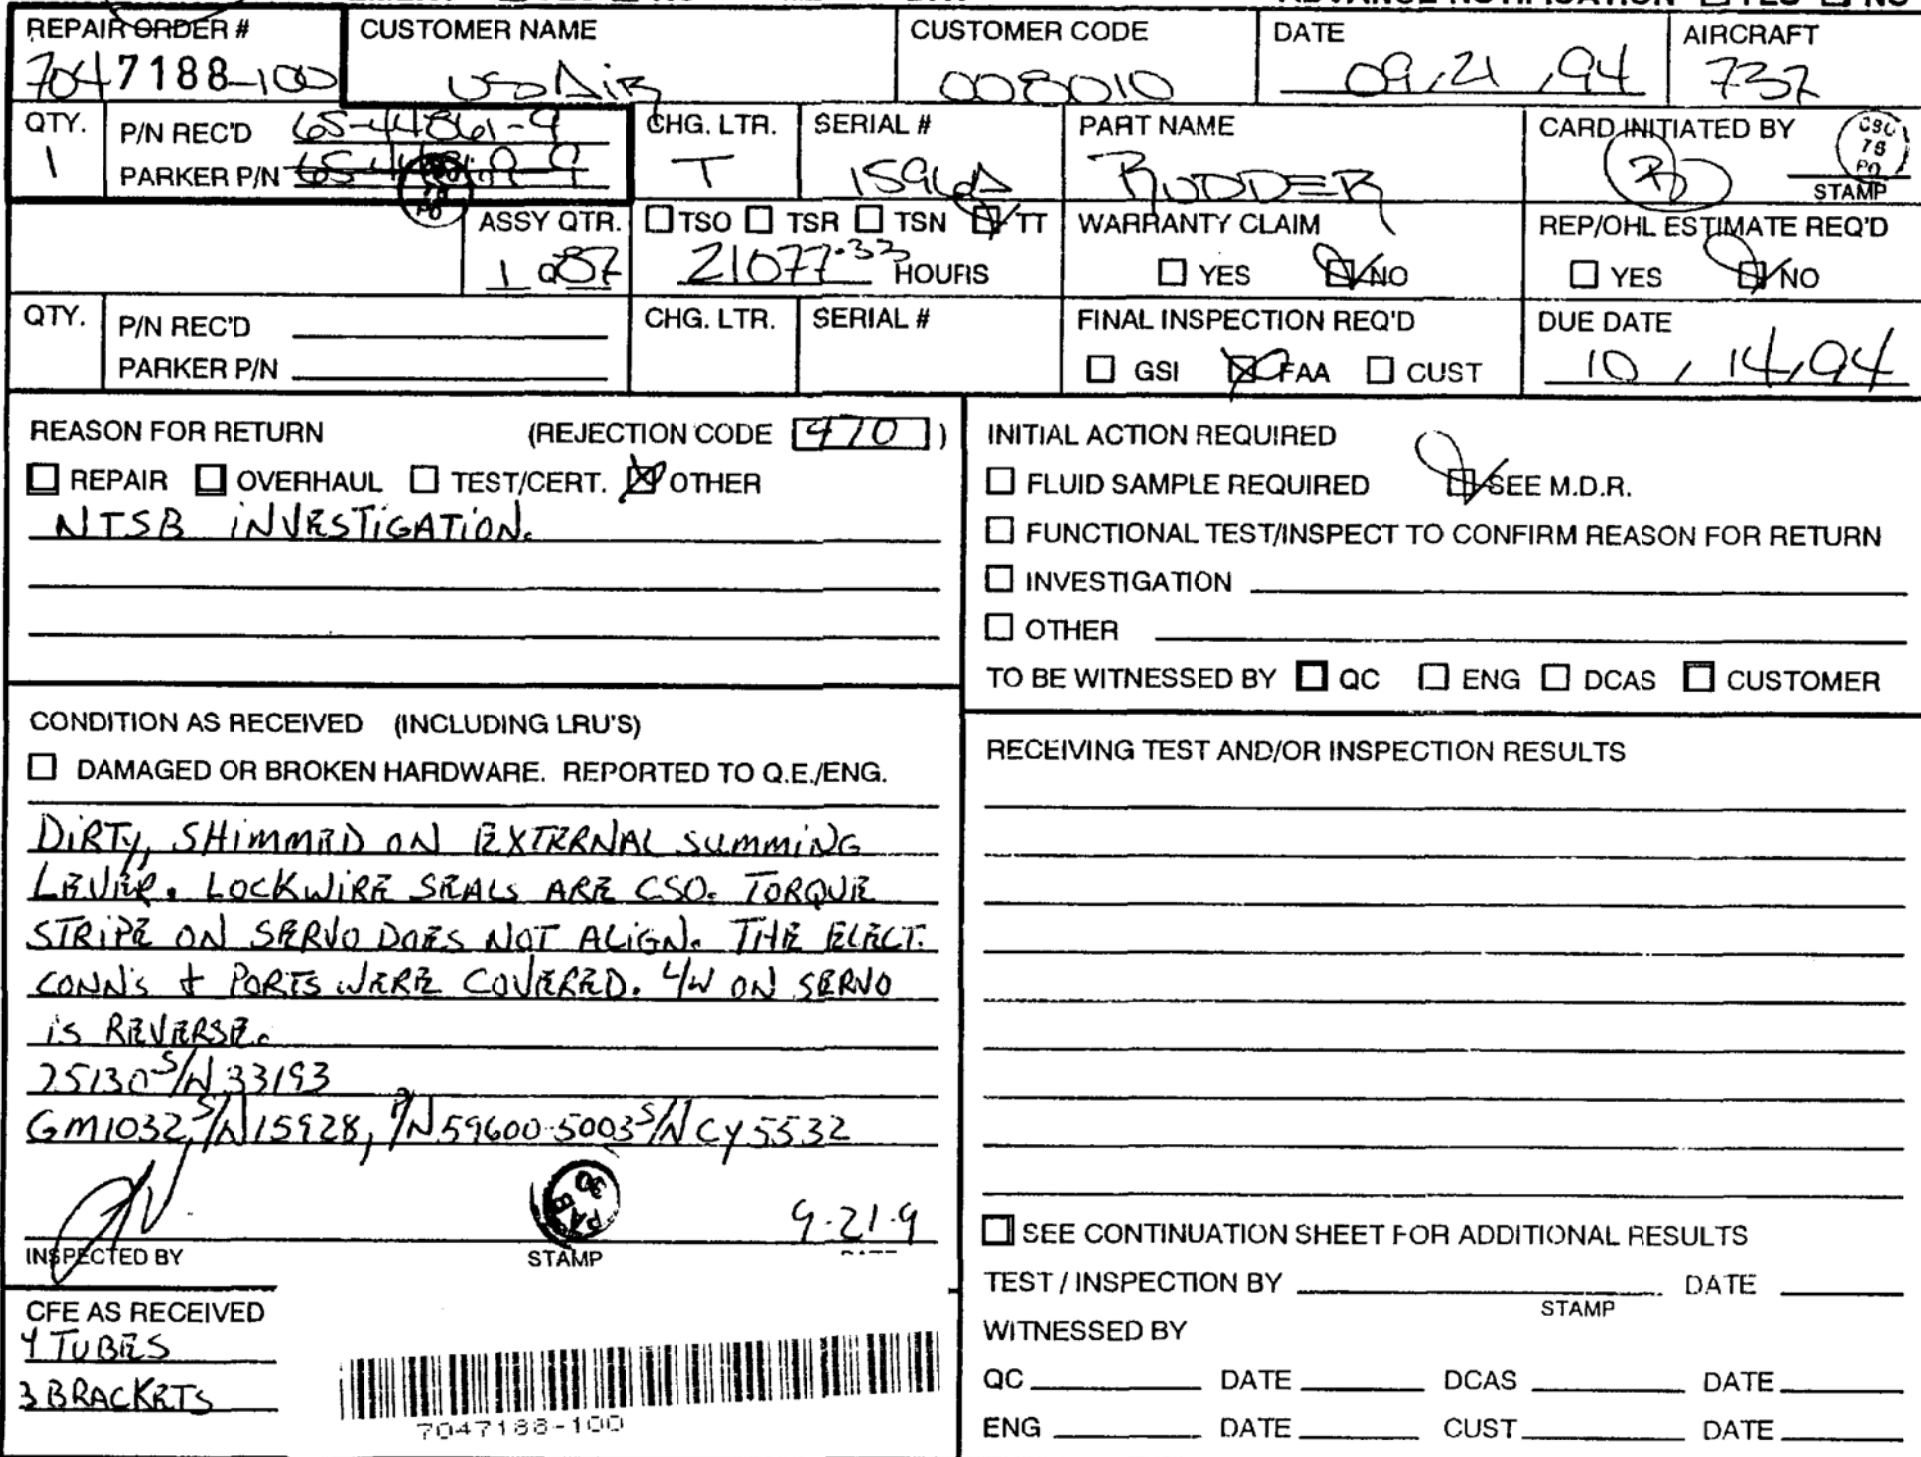 ADVANCE NOTIFICATION ☐ YES ☐ NO
REPAIR ORDER # CUSTOMER NAME CUSTOMER CODE DATE AIRCRAFT
7047188-100 USAir 008010 09,21,94 737
QTY. P/N REC'D 65-44861-9 CHG. LTR. SERIAL # PART NAME CARD INITIATED BY CSO 78 PO
1 PARKER P/N T 1596A RUDDER STAMP
ASSY QTR. ☐ TSO ☐ TSR ☐ TSN ☑ TT WARRANTY CLAIM REP/OHL ESTIMATE REQ'D
1 Q 87 21077.33 HOURS ☐ YES ☑ NO ☐ YES ☑ NO
QTY. P/N REC'D CHG. LTR. SERIAL # FINAL INSPECTION REQ'D DUE DATE
PARKER P/N ☐ GSI ☒ FAA ☐ CUST 10 / 14/94
REASON FOR RETURN (REJECTION CODE 470)
☐ REPAIR ☐ OVERHAUL ☐ TEST/CERT. ☒ OTHER
NTSB INVESTIGATION.
INITIAL ACTION REQUIRED
☐ FLUID SAMPLE REQUIRED ☑ SEE M.D.R.
☐ FUNCTIONAL TEST/INSPECT TO CONFIRM REASON FOR RETURN
☐ INVESTIGATION
☐ OTHER
TO BE WITNESSED BY ☐ QC ☐ ENG ☐ DCAS ☐ CUSTOMER
CONDITION AS RECEIVED (INCLUDING LRU'S)
☐ DAMAGED OR BROKEN HARDWARE. REPORTED TO Q.E./ENG.
DIRTY, SHIMMED ON EXTERNAL SUMMING
LEVER. LOCKWIRE SEALS ARE CSO. TORQUE
STRIPE ON SERVO DOES NOT ALIGN. THE ELECT.
CONN'S + PORTS WERE COVERED. L/W ON SERVO
IS REVERSE.
25130 S/N 33193
GM1032, S/N 15928, P/N 59600-5003 S/N CY5532
9-21-9
INSPECTED BY STAMP DATE
CFE AS RECEIVED
4 TUBES
3 BRACKETS
7047188-100
RECEIVING TEST AND/OR INSPECTION RESULTS
☐ SEE CONTINUATION SHEET FOR ADDITIONAL RESULTS
TEST / INSPECTION BY DATE
STAMP
WITNESSED BY
QC DATE DCAS DATE
ENG DATE CUST DATE